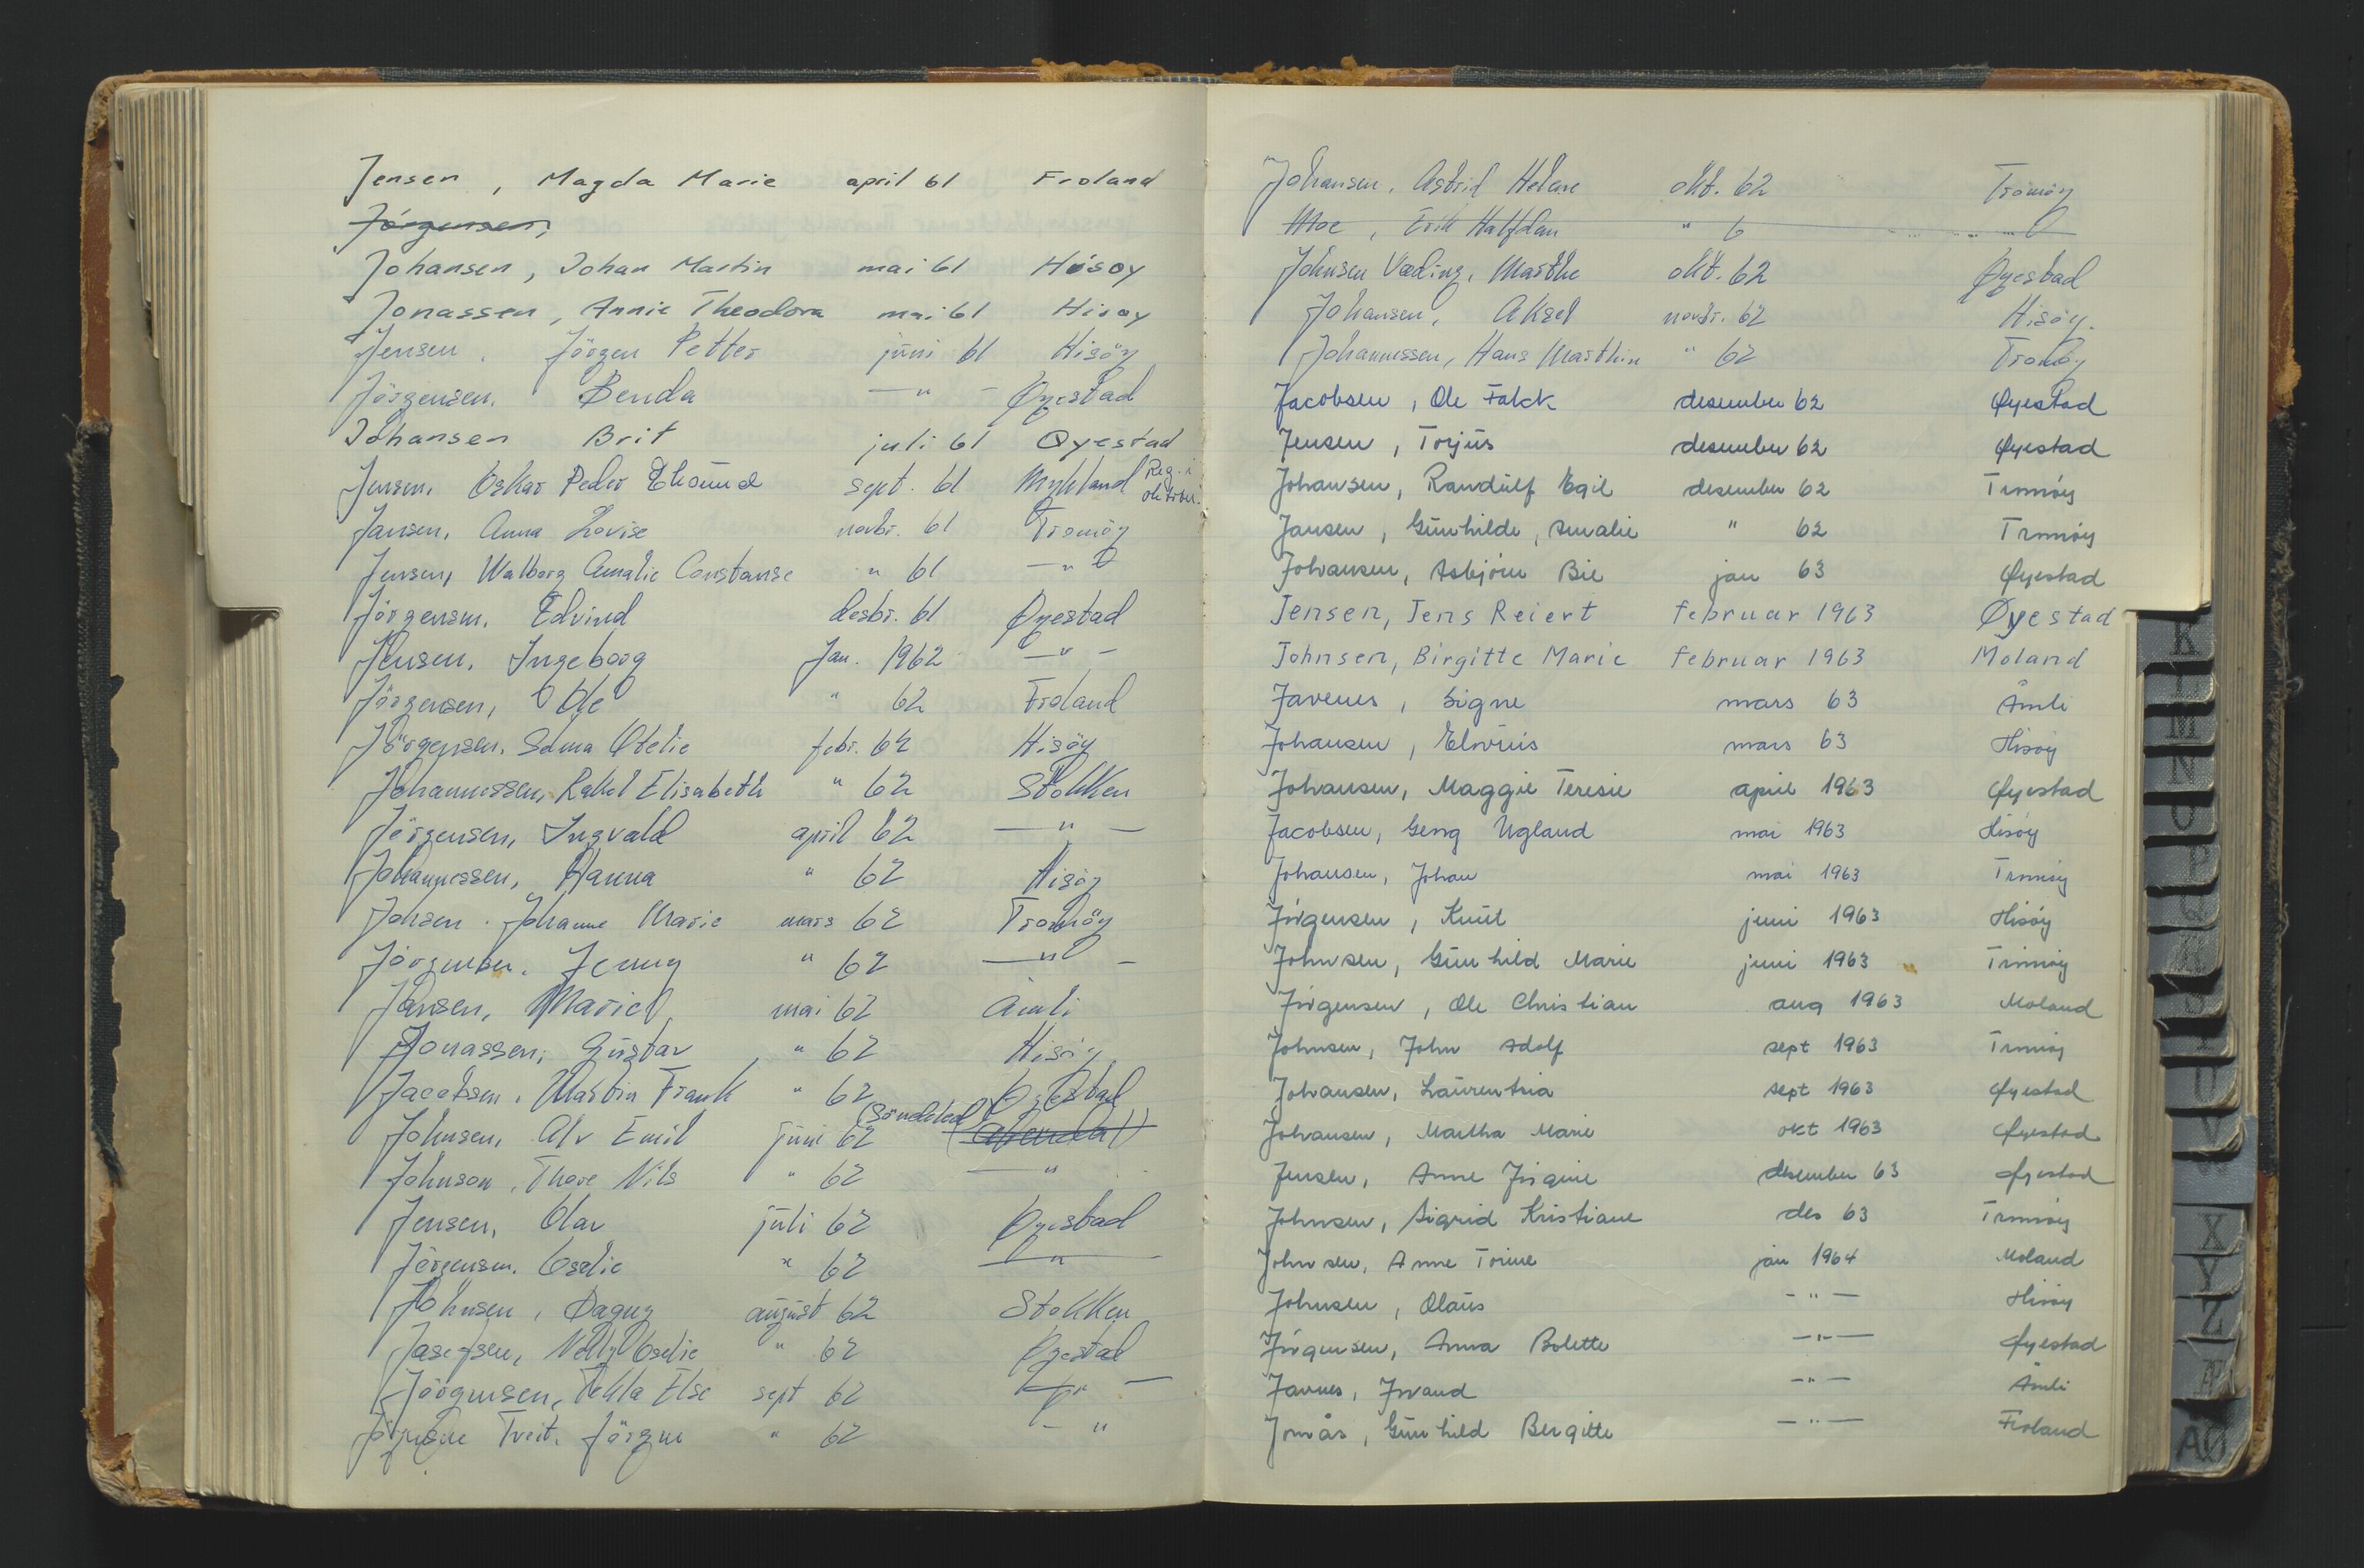 Jensen, Magda Marie april 61 Froland
Jörgensen,
Johansen, Johan Martin mai 61 Hisøy
Jonassen, Annie Theodora mai 61 Hisøy
Jensen, Jörgen Petter juni 61 Hisöy
Jörgensen, Benda — " — Øyestad
Johansen Brit juli 61 Øyestad
Jensen, Oskar Peder sept. 61 Mykland Reg. i oktober.
Jansen, Anna Lovise novbr. 61 Tromöy
Jensen, Walborg Amalie Constanse " 61 — " —
Jörgensen, Edvind desbr. 61 Øyestad
Jensen, Ingeborg Jan. 1962 — " —
Jörgensen, Ole " 62 Froland
Jörgensen, Selma Otelie febr. 62 Hisöy
Johannessen, Rakel Elisabeth " 62 Stokken
Jörgensen, Ingvald april 62 — " —
Johannessen, Hanna " 62 Hisöy
Johsen. Johanne Marie mars 62 Tromöy
Jörgensen. Jenny " 62 — " —
Jansen, Mariel mai 62 Åmli
Jonassen, Gustav " 62 Hisöy
Jacobsen, Martin Frank " 62 Øyestad
Johnsen, Alv Emil juni 62 (Søndeled) (Arendal)
Johnson, Thore Nils " 62 — " —
Jensen, Olav juli 62 Øyestad
Jörgensen. Oselie " 62 — " —
Johnsen, Dagny august 62 Stokken
Nelly Oselie " 62 Øyestad
Jörgensen, Tekla Else sept 62 — " —
Treit. Jörgen " 62 — "
Johansen, Astrid Helene okt. 62 Tromöy
Moe, Erik Halfdan " 6
Johnsen Væding, Marthe okt. 62 Øyestad
Johansen, Aksel novbr. 62 Hisöy.
Johannessen, Hans Marthin " 62 Tromöy
Jacobsen, Ole Falck desember 62 Øyestad
Jensen, Torjus desember 62 Øyestad
Johansen, Randulf Egil desember 62 Tromöy
Jansen, Gunhilde, Amalie " 62 Tromöy
Johansen, Asbjörn Bie jan 63 Øyestad
Jensen, Jens Reiert februar 1963 Øyestad
Johnsen, Birgitte Marie februar 1963 Moland
Javenes, Signe mars 63 Åmli
Johansen, Elovius mars 63 Hisöy
Johansen, Maggie Teresie april 1963 Øyestad
Jacobsen, Georg Ugland mai 1963 Hisöy
Johansen, Johan mai 1963 Tromöy
Jörgensen, Knut juni 1963 Hisöy
Johnsen, Gunhild Marie juni 1963 Tromöy
Jörgensen, Ole Christian aug 1963 Moland
Johnsen, John Adolf sept 1963 Tromöy
Johansen, Laurentsia sept 1963 Øyestad
Johansen, Martha Marie okt 1963 Øyestad
Jensen, Anne Jörgine desember 63 Øyestad
Johnsen, Sigrid Kristiane des 63 Tromöy
Johnsen, Anne Torine jan 1964 Moland
Johnsen, Olaus — " — Hisöy
Jörgensen, Anna Bolette — " — Øyestad
Javnes, Jovand — " — Åmli
Jomås, Gunhild Bergitte — " — Froland
K
L
M
N
O
P
Q
R
S
T
U
V
X
Y
Z
Æ
AØ